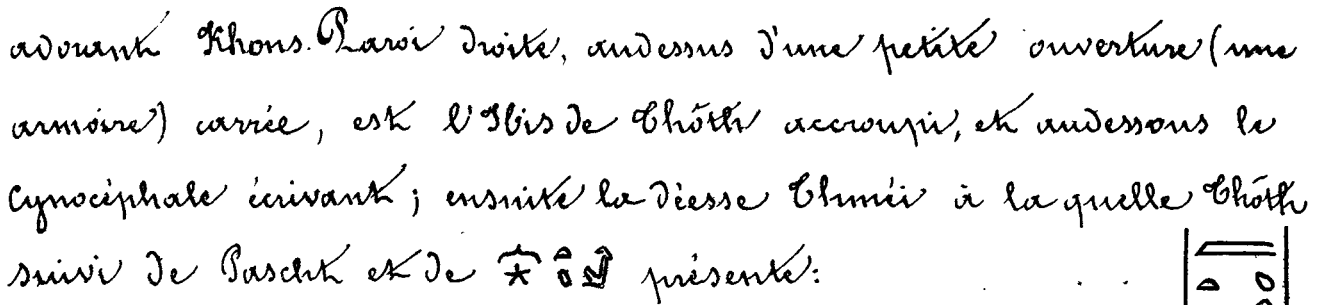 adorant Khons. Paroi droite, audessus d'une petite ouverture (une
armoire) carrée, est l'Ibis de Thôth accroupi, et audessous le
Cynocéphale écrivant; ensuite la déesse Thméi à la quelle Thôth
suivi de Pascht et de présente: